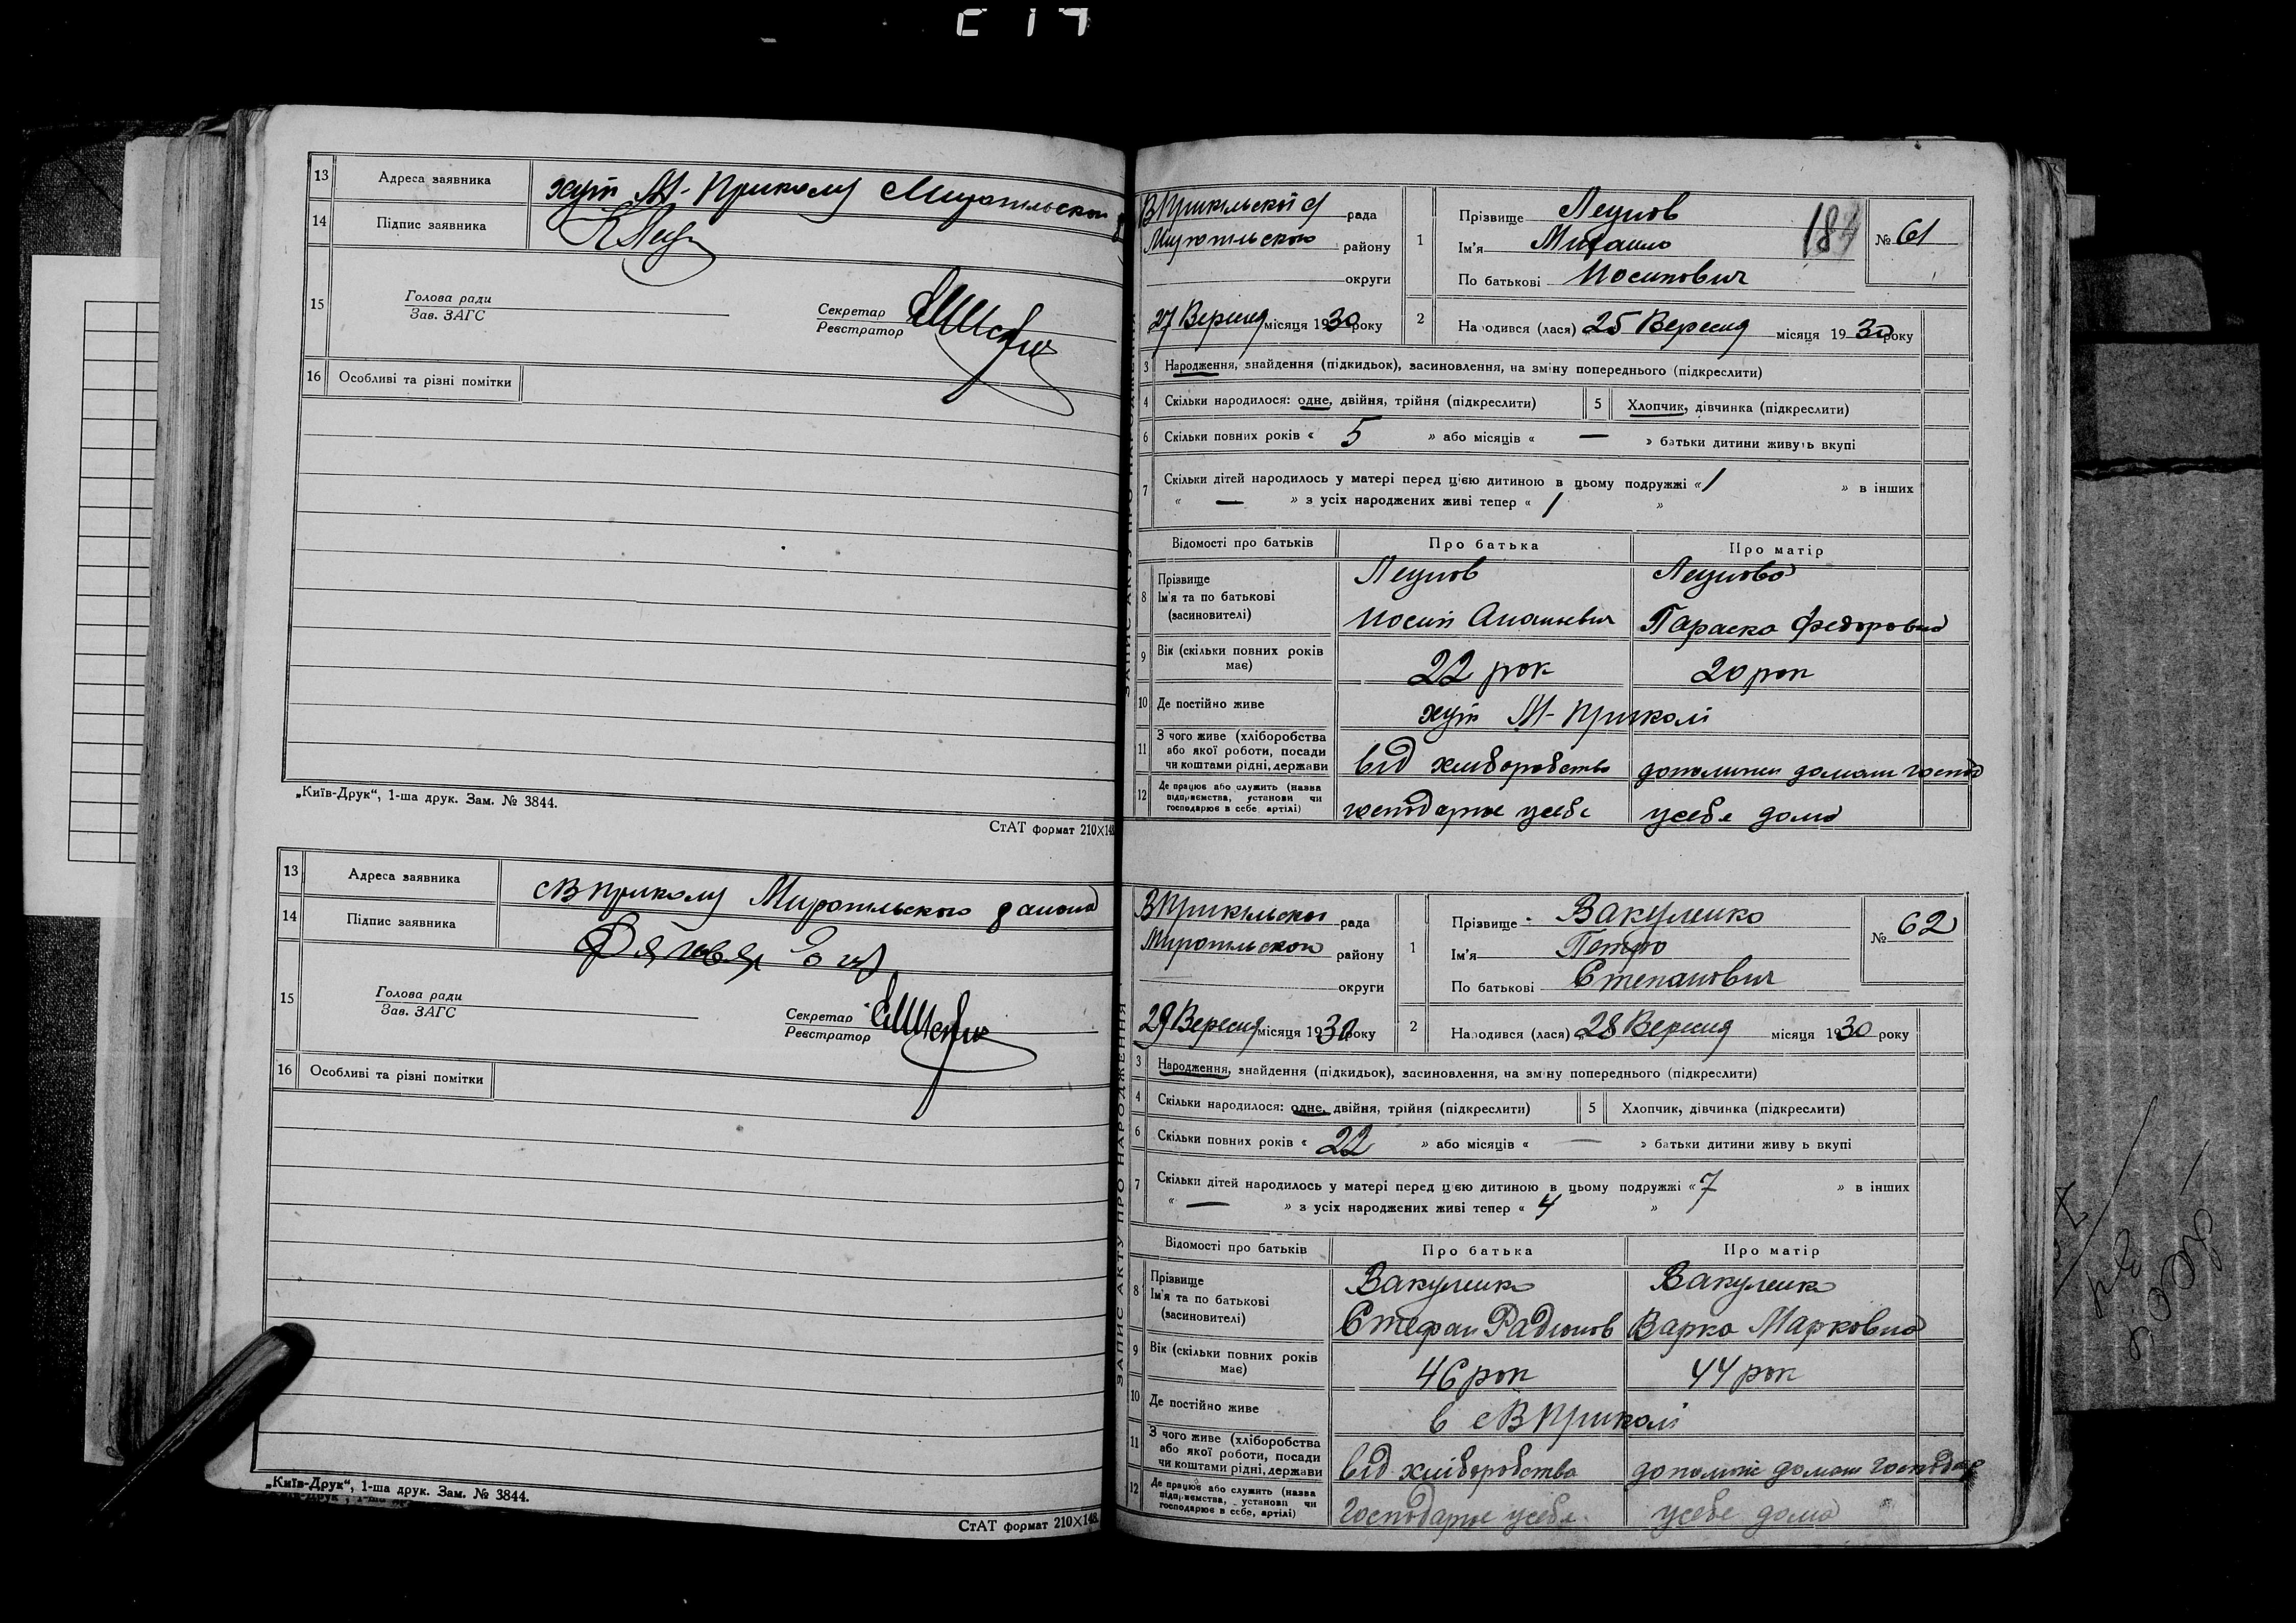 13 Адреса заявника хут М-Приколу Миропільского
14 Підпис заявника
15 Голова ради
Зав. ЗАГС
Секретар
Реєстратор
16 Особливі та різні помітки
„Київ-Друк“, 1-ша друк. Зам. № 3844.
СтАТ формат 210×148
13 Адреса заявника с В Приколу Миропільского района
14 Підпис заявника
15 Голова ради
Зав. ЗАГС
Секретар
Реєстратор
16 Особливі та різні помітки
„Київ-Друк“, 1-ша друк. Зам. № 3844.
СтАТ формат 210×148.
ЗАПИС АКТУ ПРО НАРОДЖЕННЯ
рада
Миропільского району
округи
27 Вересня місяця 1930 року
1 Прізвище Леунов
Ім'я Михаило
По батькові Иосипович
№ 61
2 Народився (лася) 25 Вересня місяця 1930 року
3 Народження, знайдення (підкидьок), засиновлення, на зміну попереднього (підкреслити)
4 Скільки народилося: одне, двійня, трійня (підкреслити) 5 Хлопчик, дівчинка (підкреслити)
6 Скільки повних років « 5 » або місяців « — » батьки дитини живуть вкупі
7 Скільки дітей народилось у матері перед цією дитиною в цьому подружжі « 1 » в інших
« — » з усіх народжених живі тепер « 1 »
Відомості про батьків Про батька Про матір
8 Прізвище Леунов Леунова
Ім'я та по батькові
(засновителі) Иосип Параска Федоровна
9 Вік (скільки повних років має) 22 рок 20 рок
10 Де постійно живе хут М-Приколі
11 З чого живе (хліборобства
або якої роботи, посади
чи коштами рідні, держави від хліборобства домаш господ
12 Де працює або служить (назва
підприємства, установи чи
господарює в себе, артілі) господарює усебе усебе дома
ЗАПИС АКТУ ПРО НАРОДЖЕННЯ
рада
Миропільского району
округи
29 Вересня місяця 1930 року
1 Прізвище Вакуленко
Ім'я Петро
По батькові Степанович
№ 62
2 Народився (лася) 28 Вересня місяця 1930 року
3 Народження, знайдення (підкидьок), засиновлення, на зміну попереднього (підкреслити)
4 Скільки народилося: одне, двійня, трійня (підкреслити) 5 Хлопчик, дівчинка (підкреслити)
6 Скільки повних років « 22 » або місяців « — » батьки дитини живу ь вкупі
7 Скільки дітей народилось у матері перед цією дитиною в цьому подружжі « 7 » в інших
« — » з усіх народжених живі тепер « 4 »
Відомості про батьків Про батька Про матір
8 Прізвище Вакуленко Вакуленко
Ім'я та по батькові
(засиновителі) Стефан Радионов Варка Марковна
9 Вік (скільки повних років має) 46 рок 44 рок
10 Де постійно живе в с В Приколі
11 З чого живе (хліборобства
або якої роботи, посади
чи коштами рідні, держави від хліборобства домаш господар
12 Де працює або служить (назва
підприємства, установи чи
господарює в себе, артілі) господарює усебе усебе дома